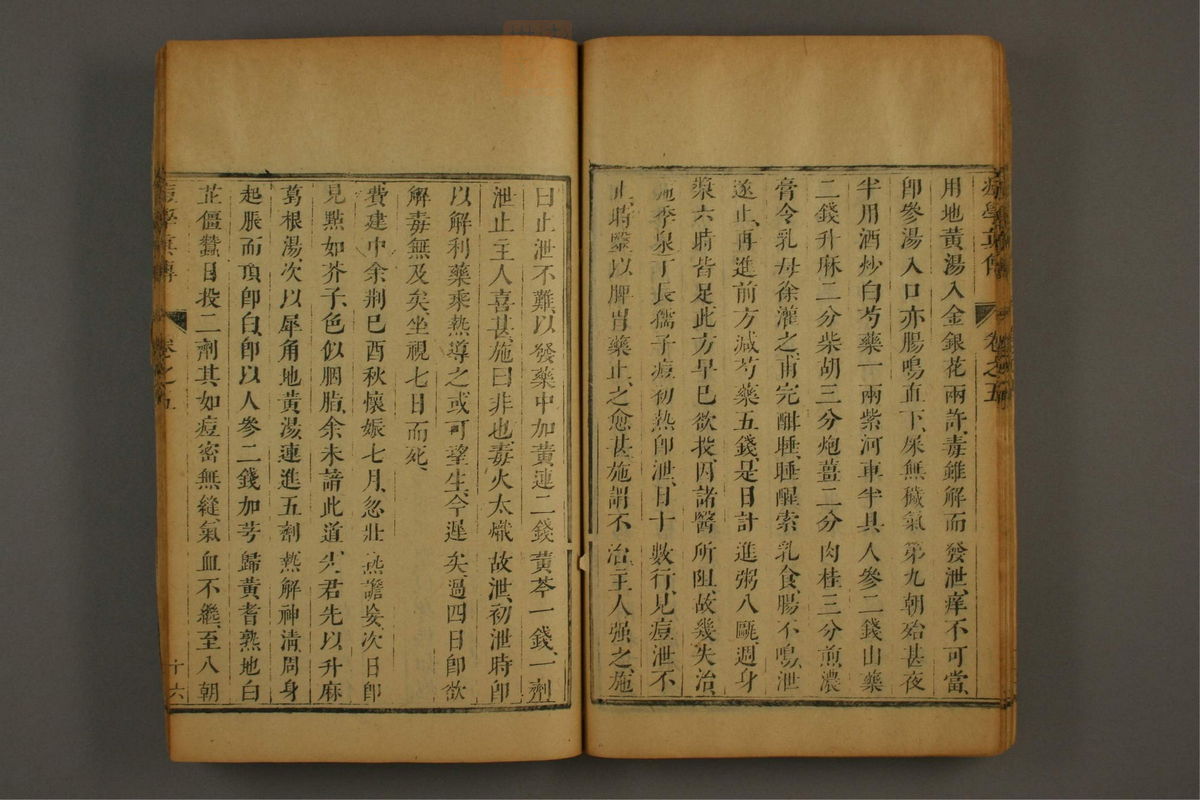 痘學真傳 卷之五
用地黃湯入金銀花兩許、毒雖解而發泄、痒不可當、
卽參湯入口亦腸鳴直下、屎無穢氣第九朝殆甚夜
半用酒炒白芍藥一兩紫河車半具人參二錢山藥
二錢升麻二分柴胡三分炮薑二分肉桂三分煎濃
膏令乳母徐灌之甫完酣睡、睡醒索乳食、腸不鳴、泄
遂止、再進前方減芍藥五錢、是日計進粥八甌、週身
漿六時皆足此方早已欲投因諸醫所阻、故幾失治、
施季泉丁長孺子痘初熱卽泄、日十數行、見痘泄不
止、時醫以脾胃藥止之愈甚施謂不治、主人强之、施
曰止泄不難、以發藥中加黃連二錢黃芩一錢、一劑
泄止主人喜甚、施曰非也毒火太熾故泄、初泄時卽
以解利藥乘熱導之或可望生、今遲矣、過四日卽欲
解毒無及矣、坐視七日而死、
費建中余荆已酉秋懷娠七月、忽壯熱譫妄、次日卽
見點如芥子、色似胭脂、余未諳此道先君先以升麻
葛根湯、次以犀角地黃湯、連進五劑熱解神淸、周身
起脹而頂卽白、卽以人參二錢加芎歸黃耆熟地白
芷僵蠶日投二劑其如痘密無縫、氣血不繼、至八朝
痘學真傳 卷之五 十六